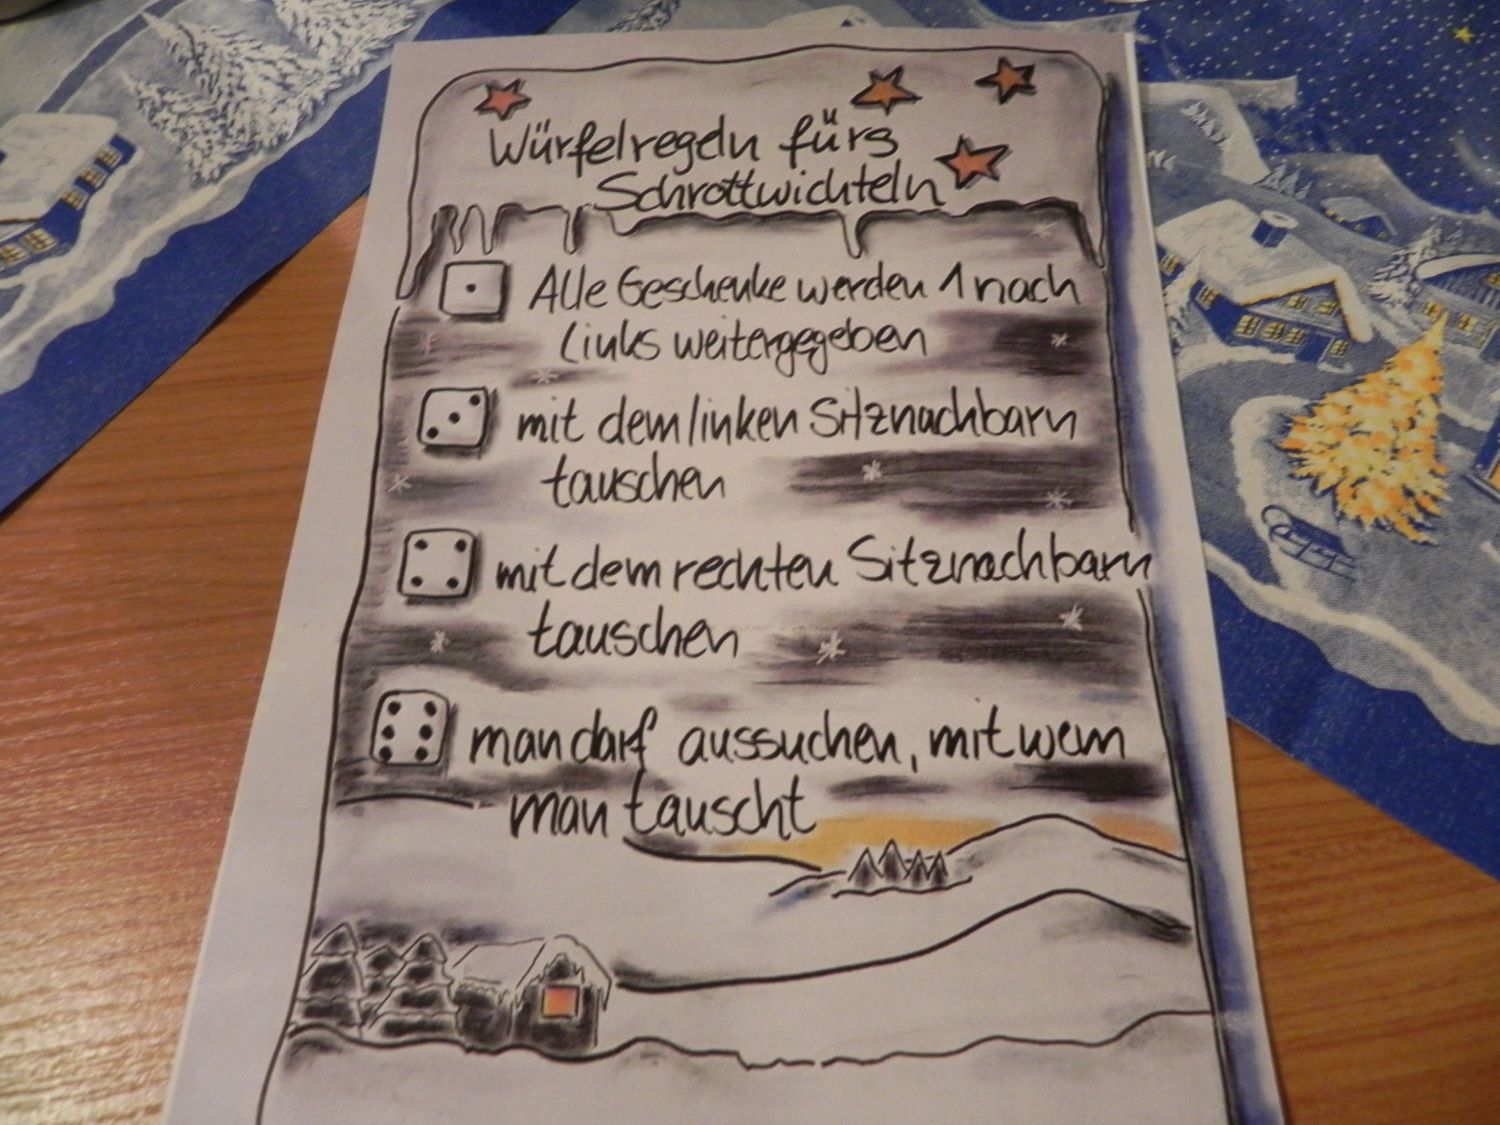 Würfelregeln fürs
Schrottwichteln
Alle Geschenke werden 1 nach
links weitergegeben
mit dem linken Sitznachbarn
tauschen
mit dem rechten Sitznachbarn
tauschen
man darf aussuchen, mit wem
man tauscht